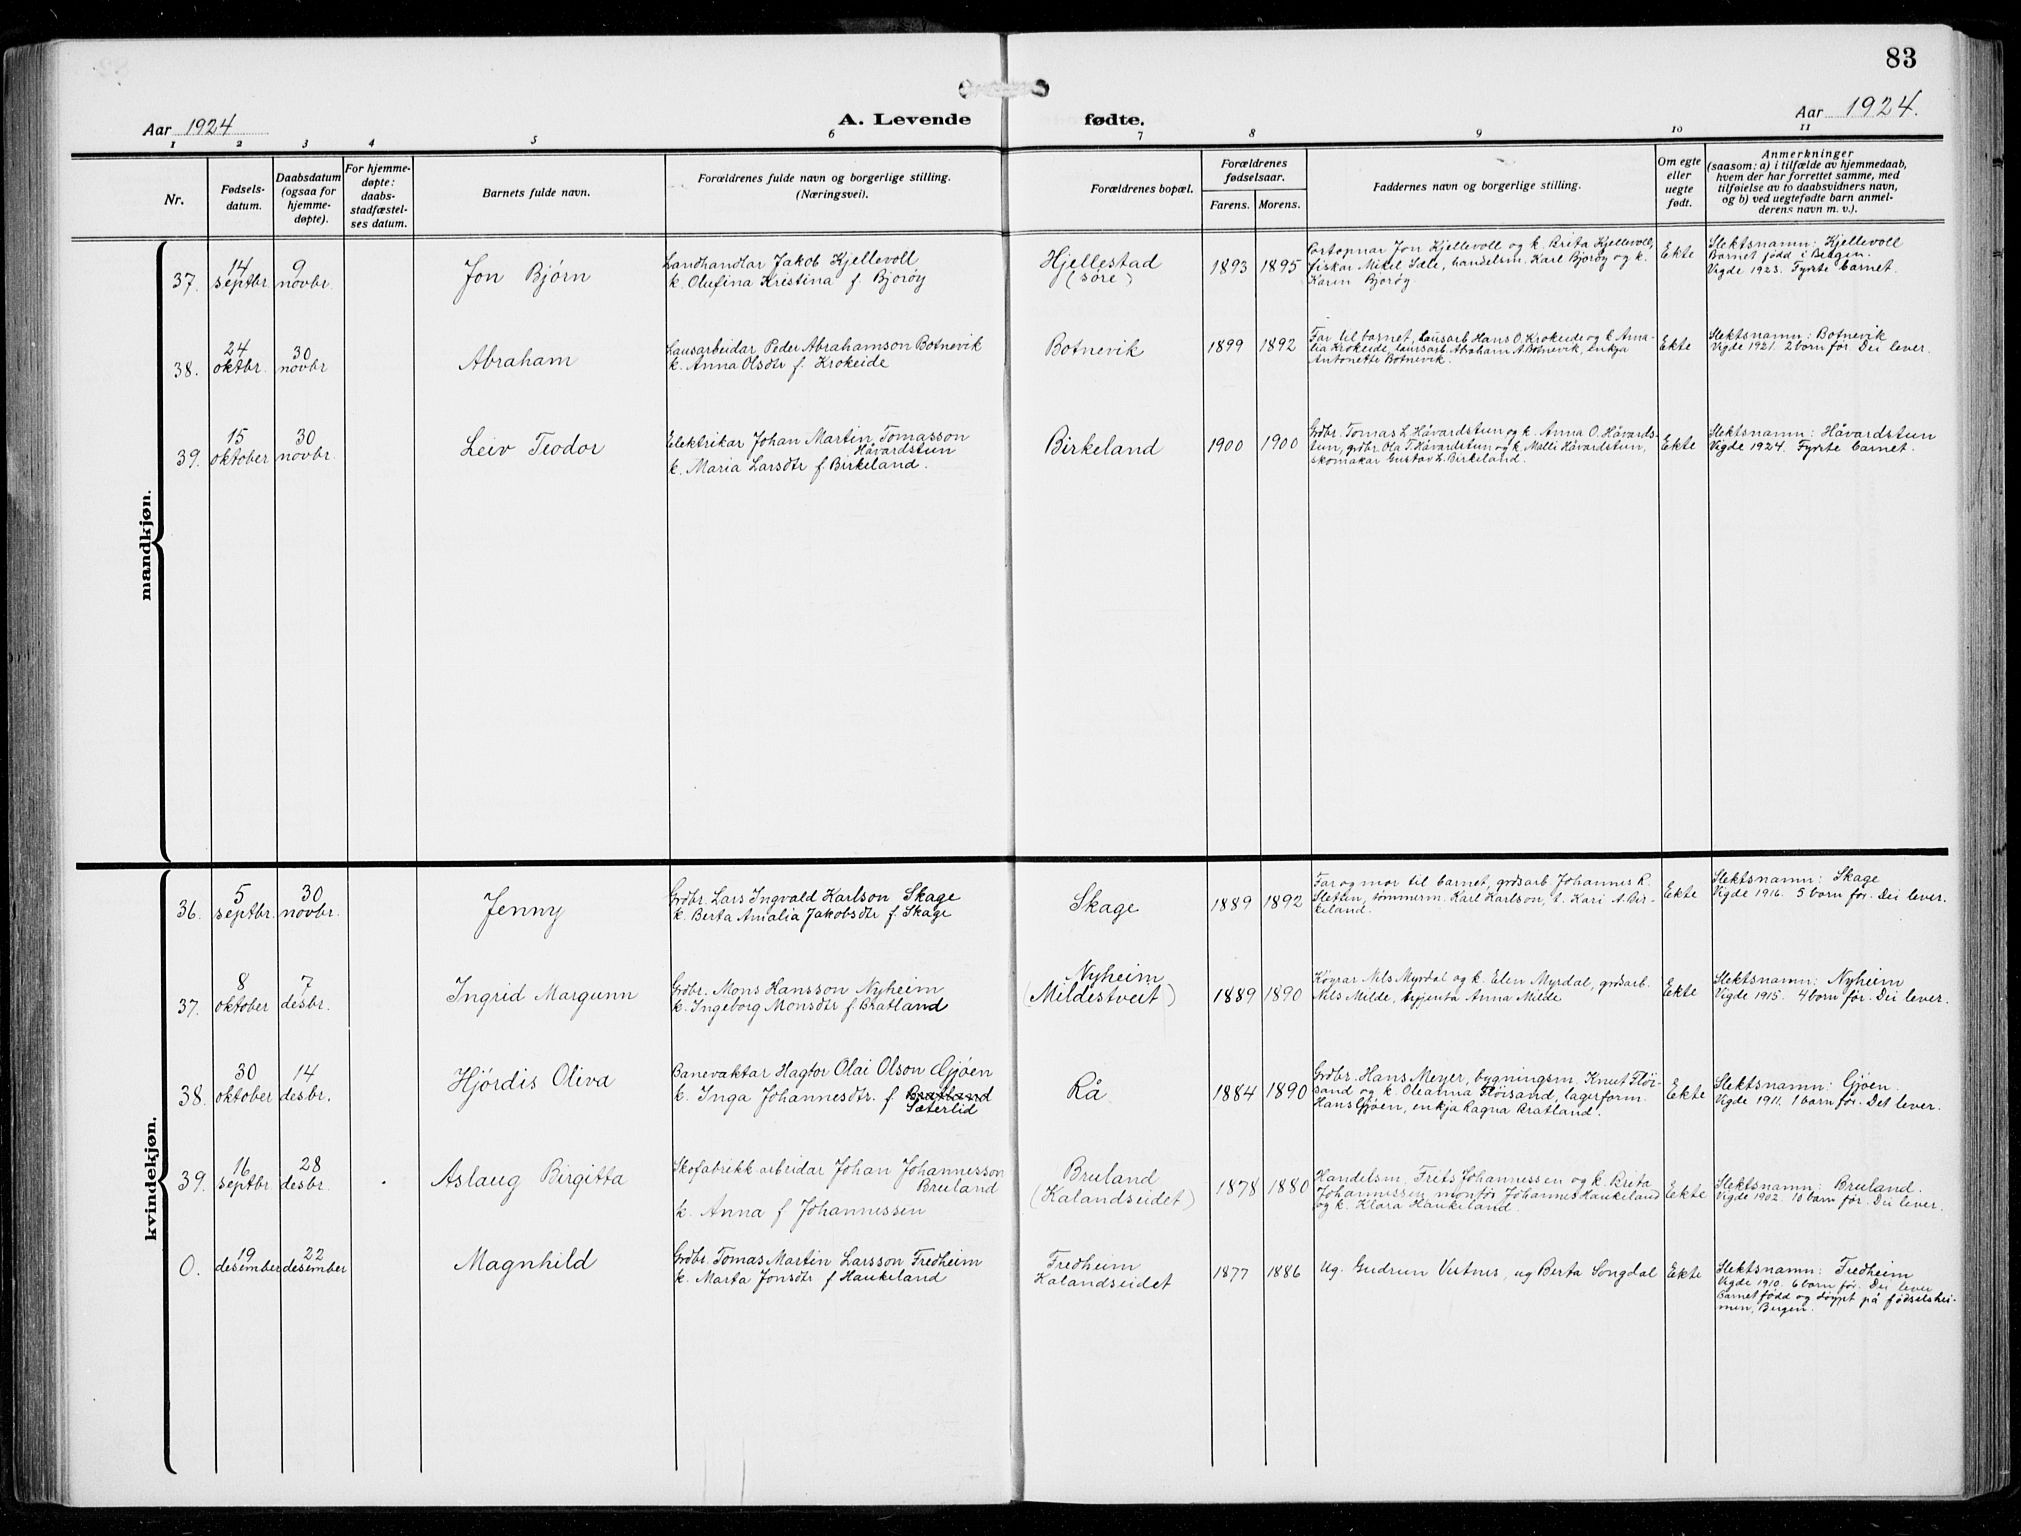 83
Aar 1924
A. Levende fødte.
Aar 1924.
1 2 3 4 5 6 7 8 9 10 11
Nr.
Fødsels-
datum.
Daabsdatum
(ogsaa for
hjemme-
døpte).
For hjemme-
døpte:
daabs-
stadfæstel-
ses datum.
Barnets fulde navn.
Forældrenes fulde navn og borgerlige stilling.
(Næringsvei).
Forældrenes bopæl.
Forældrenes
fødselsaar.
Farens. Morens.
Faddernes navn og borgerlige stilling.
Om egte
eller
uegte
født.
Anmerkninger
(saasom: a) i tilfælde av hjemmedaab,
hvem der har forrettet samme, med
tilføielse av to daabsvidners navn,
og b) ved uegtefødte barn anmel-
derens navn m. v.).
mandkjøn.
37.
14
septbr.
9
novbr.
Jon Bjørn
Landhandlar Jakob Kjellevoll
k. Olufina Kristina f. Bjorøy
Hjellestad
(søre)
1893 1895
Postopnar Jon Kjellevoll og k. Brita Kjellevoll,
fiskar Mikel Læle, handelsm. Karl Bjorøy og k.
Karen Bjorøy.
Ekte
Slektsnamn: Kjellevoll
Barnet född i Bergen.
Vigde 1923. Fyrste barnet.
38.
24
oktbr.
30
novbr
Abraham
Lausarbeidar Peder Abrahamson Botnevik
k. Anna Olsdtr f. Krokeide
Botnevik
1899 1892
Far til barnet, lausarb Hans O. Krokeide og k. Ama-
lia Krokeide, lausarb. Abraham A. Botnevik, enkja
Antonette Botnevik.
Ekte
Slektsnamn: Botnevik
Vigde 1921. 2 born før. Dei lever.
39.
15
oktober
30
novbr.
Leiv Teodor
Elektrikar Johan Martin Tomasson
Håvardstun
k. Maria Larsdtr f. Birkeland.
Birkeland
1900 1900
Grdbr. Tomas L. Håvardstun og k. Anna O. Håvards-
tun, grdbr. Ola T. Håvardstun og k. Malli Håvardstun,
skomakar Gustav L. Birkeland.
Ekte
Slektsnamn: Håvardstun
Vigde 1924. Fyrste barnet.
kvindekjøn.
36.
5
septbr.
30
novbr.
Jenny
Grdbr. Lars Ingvald Karlson Skage
k. Berta Amalia Jakobsdtr f. Skage
Skage
1889 1892
Far og mor til barnet, grdsarb. Johannes R.
Sletten, tømmerm. Karl Karlson, t. Kari A. Bir-
keland.
Ekte
Slektsnamn: Skage
Vigde 1916. 5 born før. Dei lever.
37.
8
oktober
7
desbr.
Ingrid Margunn
Grdbr. Mons Hansson Nyheim
k. Ingeborg Monsdtr f. Bratland
Nyheim
(Mildestveit)
1889 1890
Køyrar Nils Myrdal og k. Elen Myrdal, grdsarb.
Nils Milde, tyjenta Anna Milde
Ekte
Slektsnamn: Nyheim
Vigde 1915. 4 born før. Dei lever.
38.
30
oktober
14
desbr.
Hjørdis Oliva
Banevaktar Hagtor Olai Olson Gjøen
k. Inga Johannesdtr. f. Bratland
Sæterlid
Rå
1884 1890
Grdbr. Hans Meyer, bygningsm. Knut Fløi-
sand og k. Oleanna Fløisand, lagerform.
Hans Gjøen, enkja Ragna Bratland.
Ekte
Slektsnamn: Gjøen.
Vigde 1911. 1 born før. Det lever.
39.
16
septbr
28
desbr.
Aslaug Birgitta
Skofabrikk-arbeidar Johan Johannesson
Bruland
k. Anna f Johannessen
Bruland
(Kalandseidet)
1878 1880
Handelsm. Frits Johannessen og k. Brita
Johannessen, montør Johannes Haukeland
og k. Klara Haukeland.
Ekte
Slektsnamn: Bruland.
Vigde 1902. 10 born før. Dei lever.
0.
19
desember
22
desember
Magnhild
Grdbr. Tomas Martin Larsson Fredheim
k. Marta Jonsdtr f Haukeland
Fredheim
Kalandseidet
1877 1886
Ug. Gudrun Veitnes, ug Berta Songdal
Ekte
Slektsnamn: Fredheim
Vigde 1910. 6 born før. Dei lever
Barnet född og döypt på födselshei-
men, Bergen.